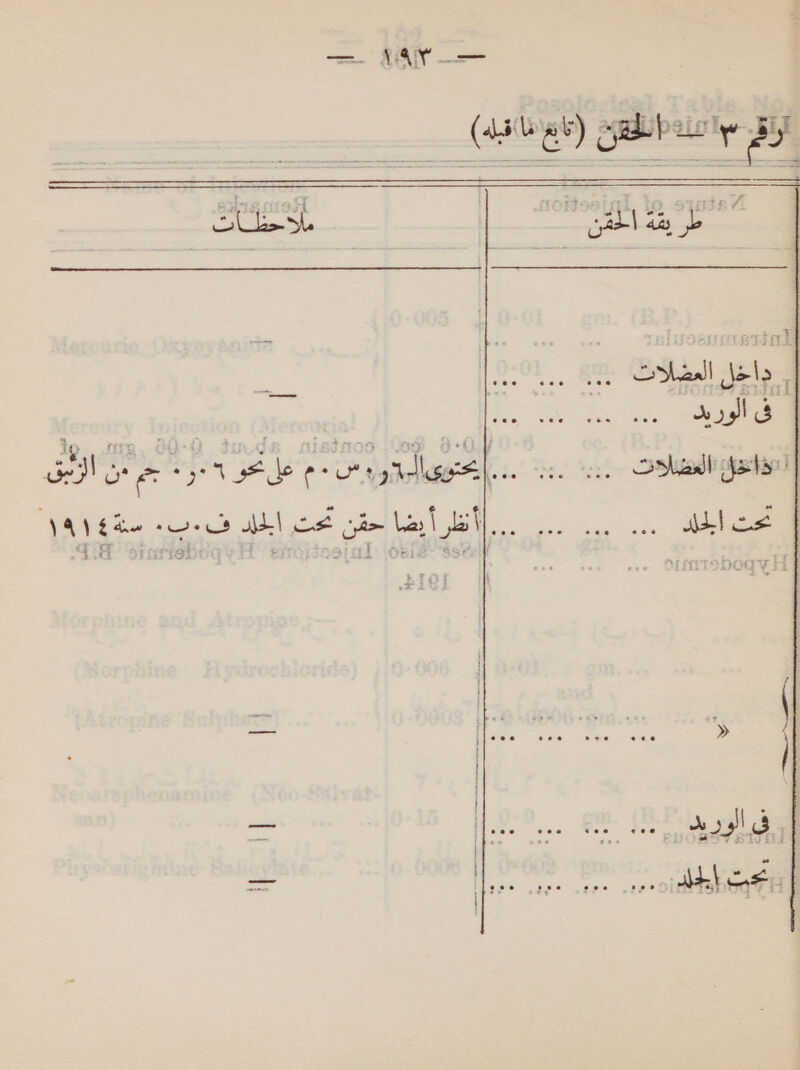 — ١٩٣ —
رقم ٣ — الحقن (تابع ما قبله)
طريقة الحقن
ملاحظات
داخل العضلات ... ... ... —
فى الوريد ... ... ... ... —
داخل العضلات ... ... ... يحتوى الـ ٦ر٠ س٠م على نحو ٠٦ر٠ جم من الزئبق
تحت الجلد ... ... ... ... أنظر أيضا حقن تحت الجلد ف٠ب٠ سنة ١٩١٤
» ... ... ... ... —
فى الوريد ... ... ... ... —
تحت الجلد ... ... ... ... —